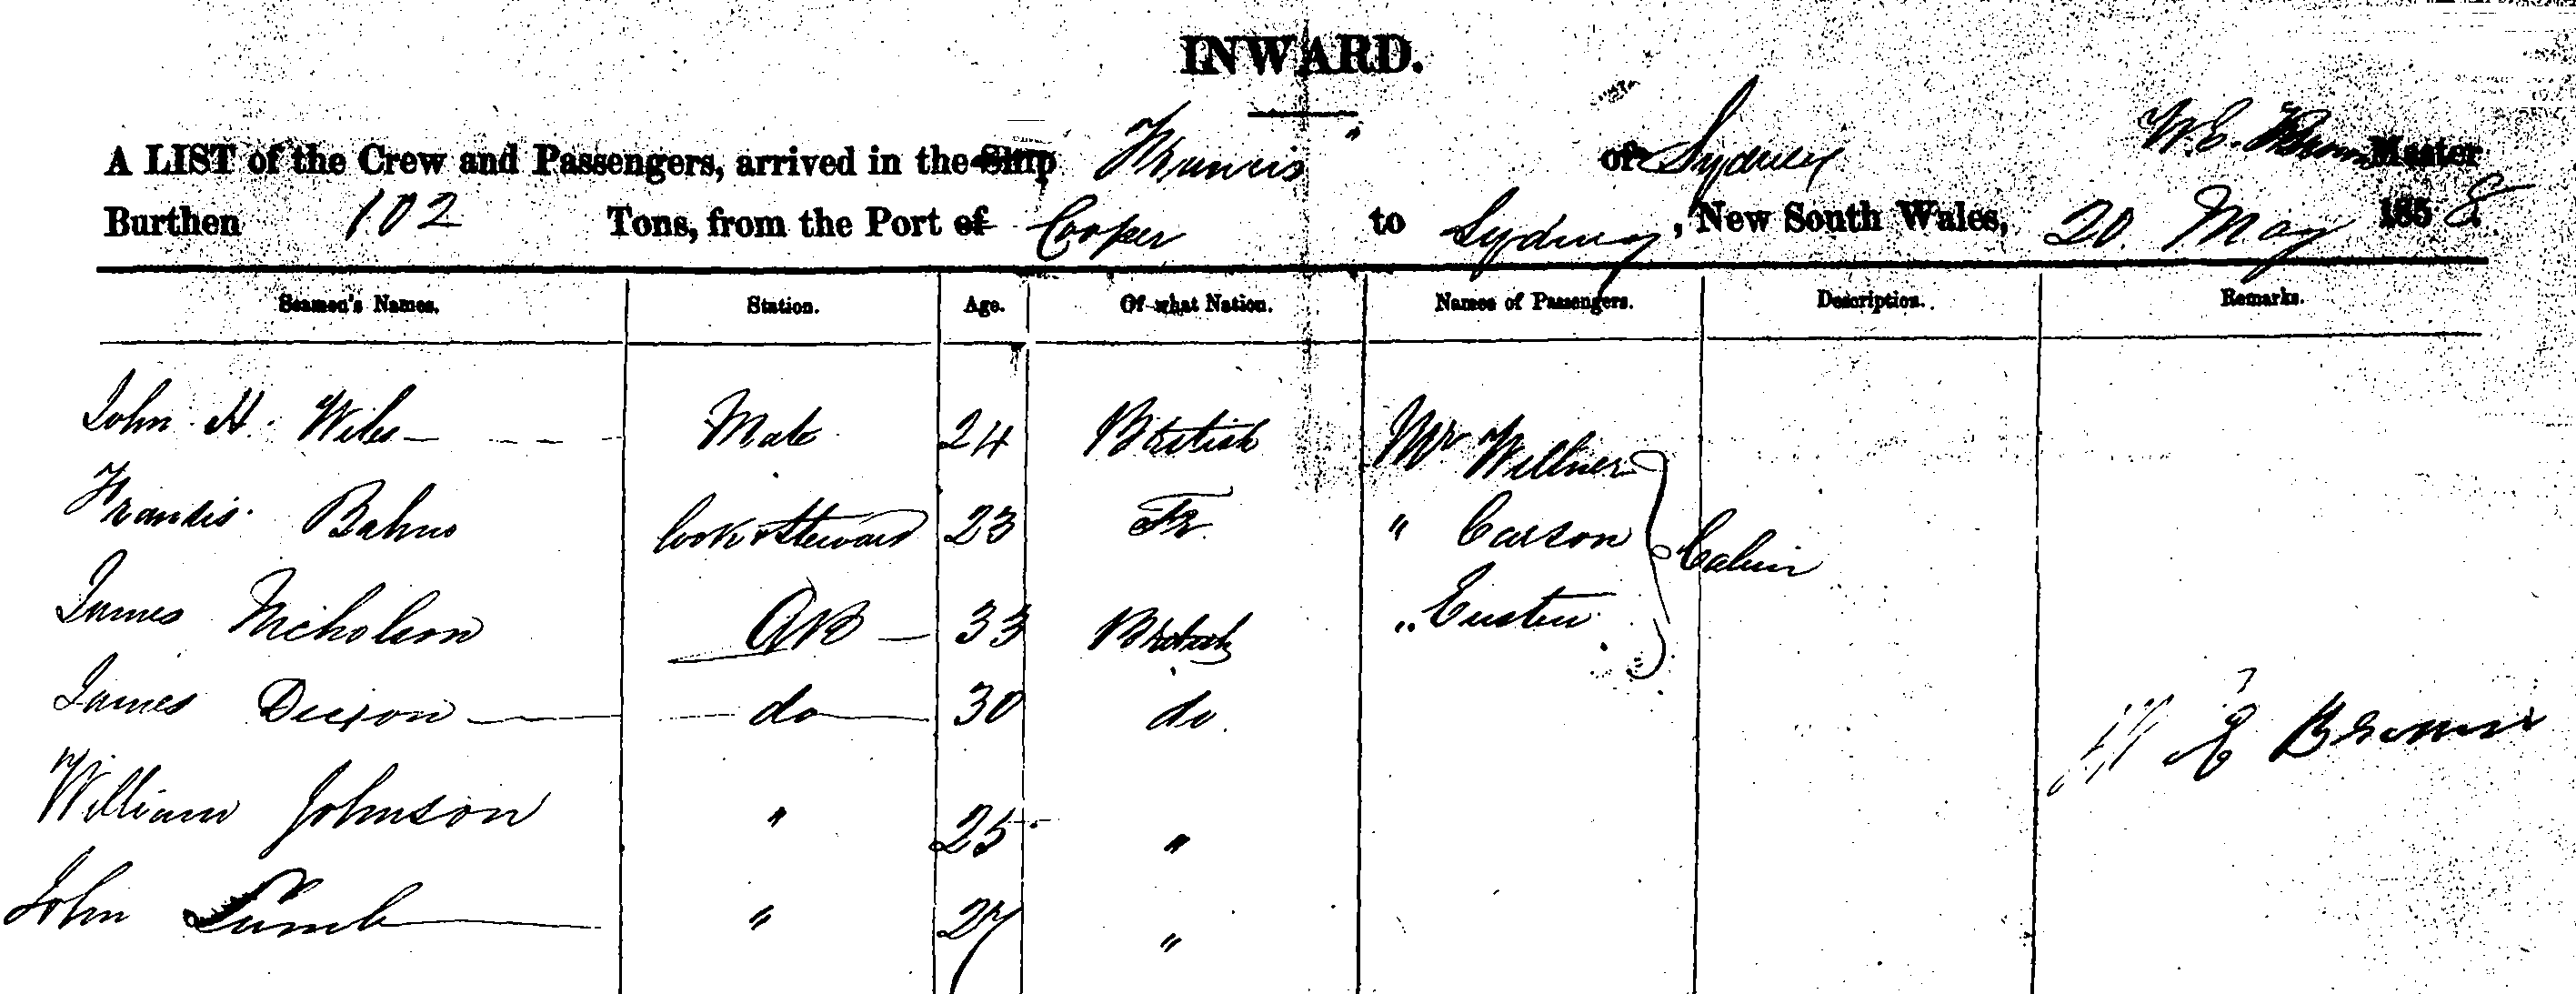 INWARD.
A LIST of the Crew and Passengers, arrived in the Ship Francis " of Sydney W. E. Brown Master
Burthen 102 Tons, from the Port of Cooper to Sydney, New South Wales, 20. May 1858.
Seamen's Names. Station. Age. Of what Nation. Names of Passengers. Description. Remarks.
John H. Wiles Mate 24 British Mr Willner
Francis Cook & Steward 23 Fr. " Carson Cabin
James Nicholson AB 33 British "
James Dixon do 30 do. W E Brown
William Johnson " 25 "
John Lumb " 27 "